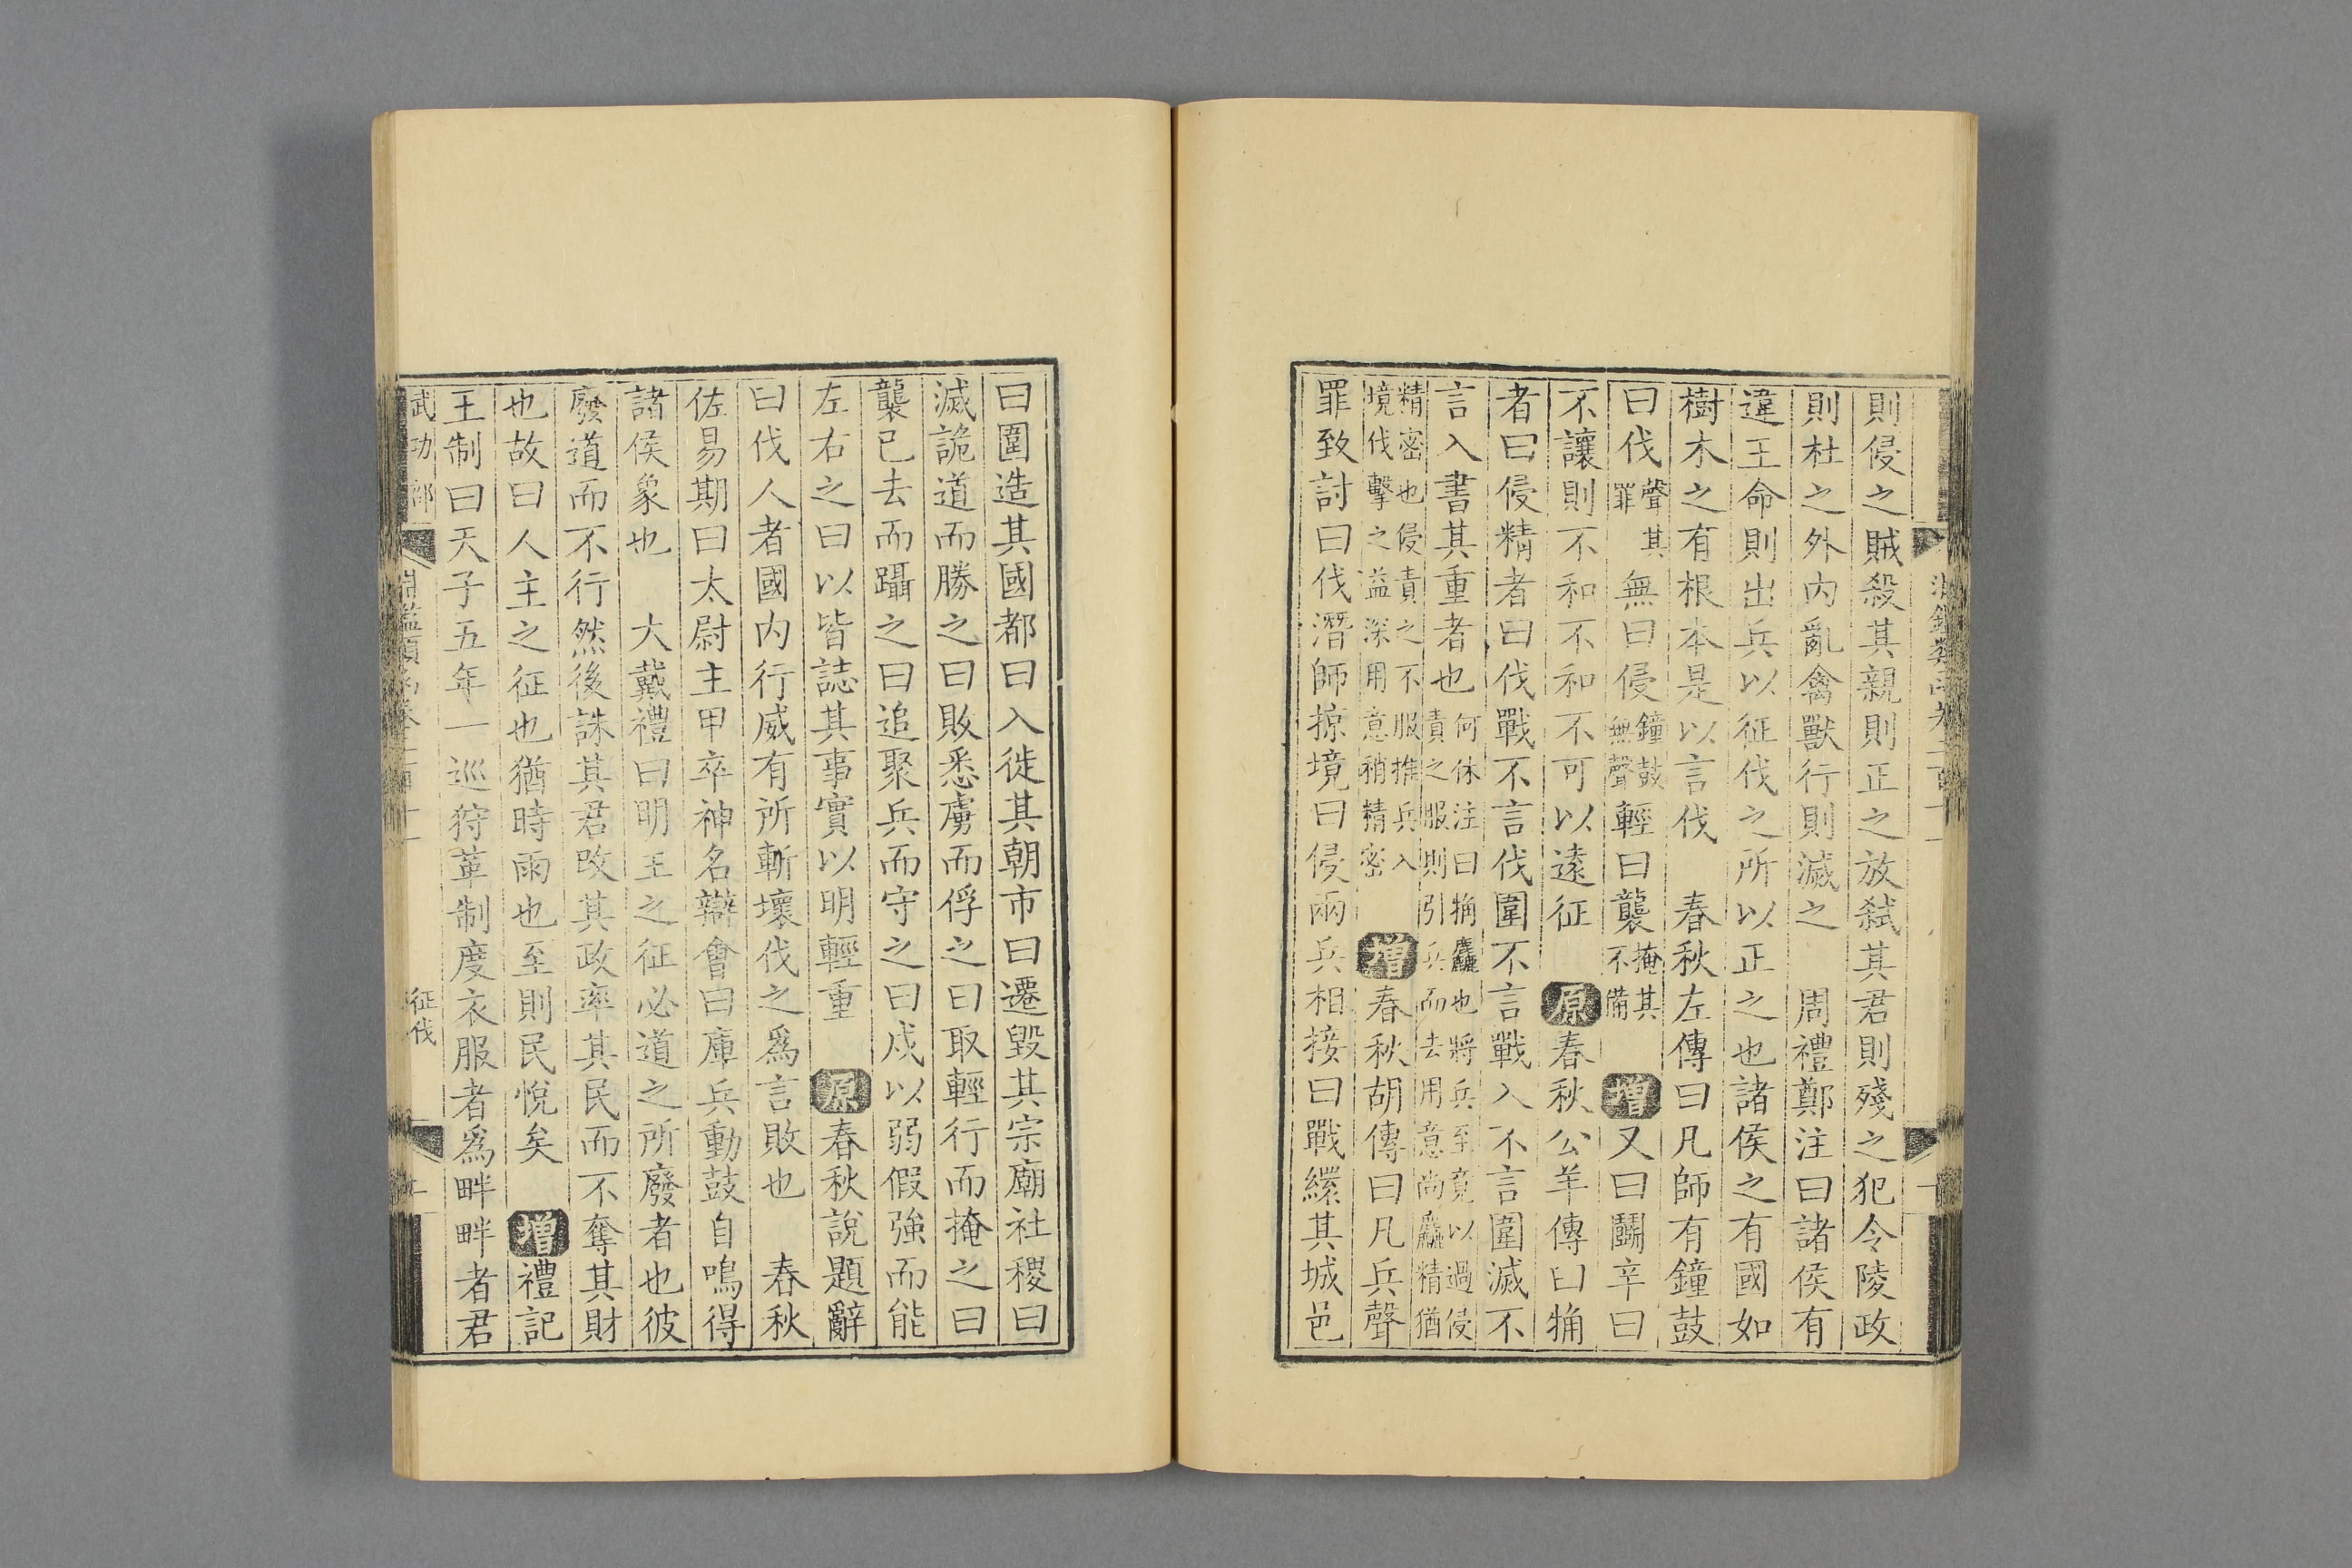 則侵之賊殺其親則正之放弑其君則殘之犯令陵政
則杜之外內亂禽獸行則滅之　周禮鄭注曰諸侯有
違王命則出兵以征伐之所以正之也諸侯之有國如
樹木之有根本是以言伐　春秋左傳曰凡師有鐘鼓
曰伐聲其罪無曰侵鐘鼓無聲輕曰襲掩其不備　增又曰鬭辛曰
不讓則不和不和不可以遠征　原春秋公羊傳曰觕
者曰侵精者曰伐戰不言伐圍不言戰入不言圍滅不
言入書其重者也何休注曰觕麤也將兵至竟以過侵責之服則引兵而去用意尚麤精猶
精密也侵責之不服推兵入境伐擊之益深用意稍精密　增春秋胡傳曰凡兵聲
罪致討曰伐潛師掠境曰侵兩兵相接曰戰繯其城邑
曰圍造其國都曰入徙其朝市曰遷毀其宗廟社稷曰
滅詭道而勝之曰敗悉虜而俘之曰取輕行而掩之曰
襲已去而躡之曰追聚兵而守之曰戍以弱假強而能
左右之曰以皆誌其事實以明輕重　原春秋說題辭
曰伐人者國內行威有所斬壞伐之爲言敗也　春秋
佐易期曰太尉主甲卒神名辯會曰庫兵動鼓自鳴得
諸侯象也　大戴禮曰明王之征必道之所廢者也彼
廢道而不行然後誅其君改其政率其民而不奪其財
也故曰人主之征也猶時雨也至則民悅矣　增禮記
王制曰天子五年一巡狩革制度衣服者爲畔畔者君
武功部
征伐